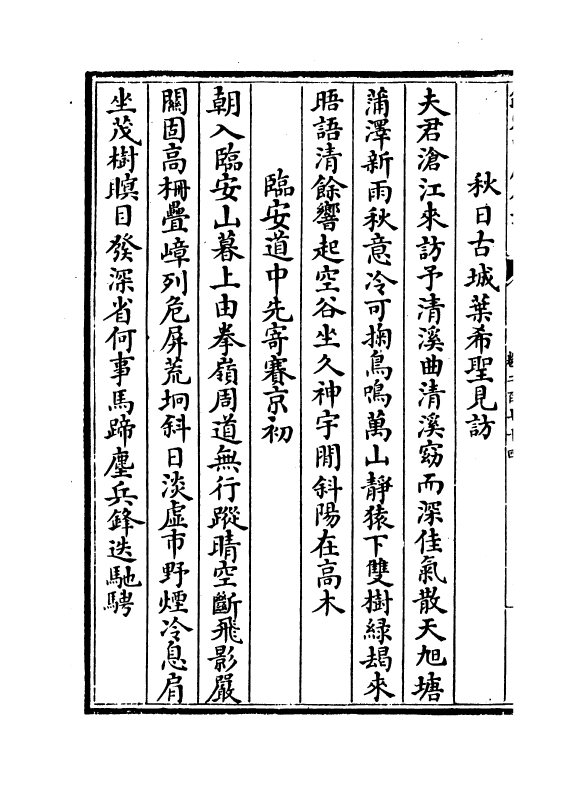 秋日古城葉希聖見訪
夫君滄江來訪予清溪曲清溪窈而深佳氣散天旭塘
蒲澤新雨秋意冷可掬鳥鳴萬山靜猿下雙樹緑朅來
晤語清餘響起空谷坐久神宇閒斜陽在高木
臨安道中先寄賽京初
朝入臨安山暮上由拳嶺周道無行蹤晴空斷飛影嚴
關固高柵疊嶂列危屏荒坰斜日淡虛市野煙冷息肩
坐茂樹瞑目發深省何事馬蹄塵兵鋒迭馳騁